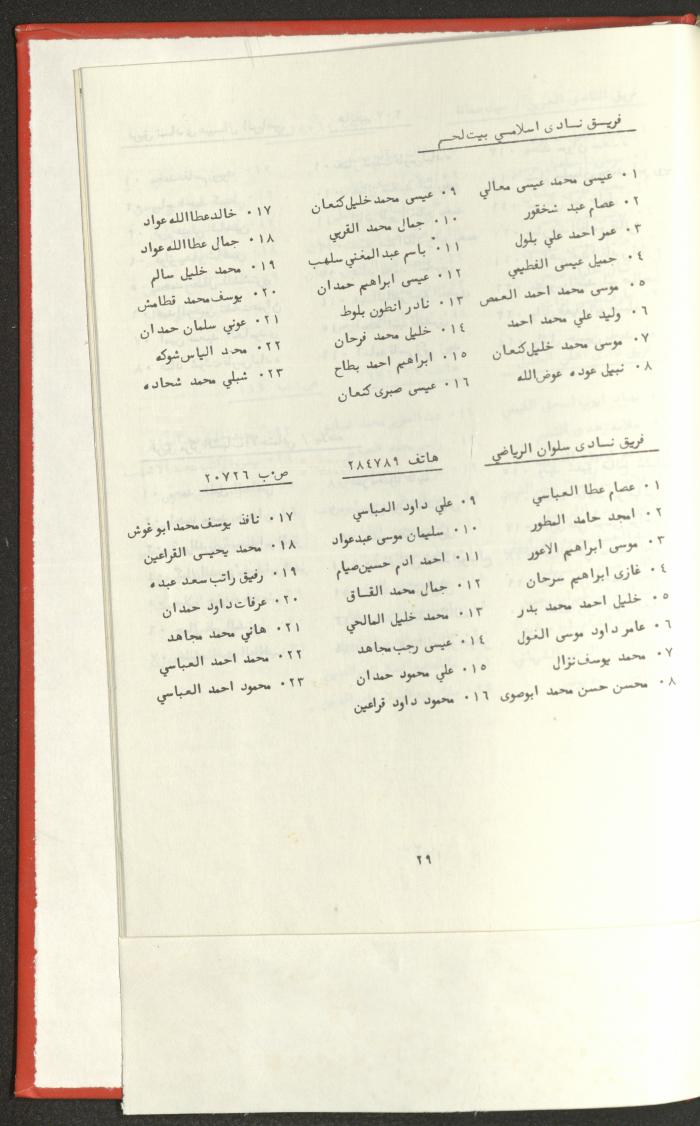 فريق نادى اسلامي بيت لحم
٠١ عيسى محمد عيسى معالي
٠٢ عصام عبد شخقور
٠٣ عمر احمد علي بلول
٠٤ جميل عيسى الفطيمي
٠٥ موسى محمد احمد العمص
٠٦ وليد علي محمد احمد
٠٧ موسى محمد خليل كنعان
٠٨ نبيل عوده عوض الله
٠٩ عيسى محمد خليل كنعان
٠١٠ جمال محمد القربي
٠١١ باسم عبد المغني سلهب
٠١٢ عيسى ابراهيم حمدان
٠١٣ نادر انطون بلوط
٠١٤ خليل محمد فرحان
٠١٥ ابراهيم احمد بطاح
٠١٦ عيسى صبرى كنعان
٠١٧ خالد عطا الله عواد
٠١٨ جمال عطا الله عواد
٠١٩ محمد خليل سالم
٠٢٠ يوسف محمد قطامش
٠٢١ عوني سلمان حمدان
٠٢٢ محمد الياس شوكه
٠٢٣ شبلي محمد شحاده
فريق نادى سلوان الرياضي
هاتف ٢٨٤٧٨٩
ص٠ب ٢٠٧٢٦
٠١ عصام عطا العباسي
٠٢ امجد حامد المطور
٠٣ موسى ابراهيم الاعور
٠٤ غازى ابراهيم سرحان
٠٥ خليل احمد محمد بدر
٠٦ عامر داود موسى الغول
٠٧ محمد يوسف نزال
٠٨ محسن حسن محمد ابوصوى
٠٩ علي داود العباسي
٠١٠ سليمان موسى عبد عواد
٠١١ احمد ادم حسين صيام
٠١٢ جمال محمد القاق
٠١٣ محمد خليل المالحي
٠١٤ عيسى رجب مجاهد
٠١٥ علي محمود حمدان
٠١٦ محمود داود قراعين
٠١٧ نافذ يوسف محمد ابو غوش
٠١٨ محمد يحيى القراعين
٠١٩ رفيق راتب سعد عبده
٠٢٠ عرفات داود حمدان
٠٢١ هاني محمد مجاهد
٠٢٢ محمد احمد العباسي
٠٢٣ محمود احمد العباسي
٢٩